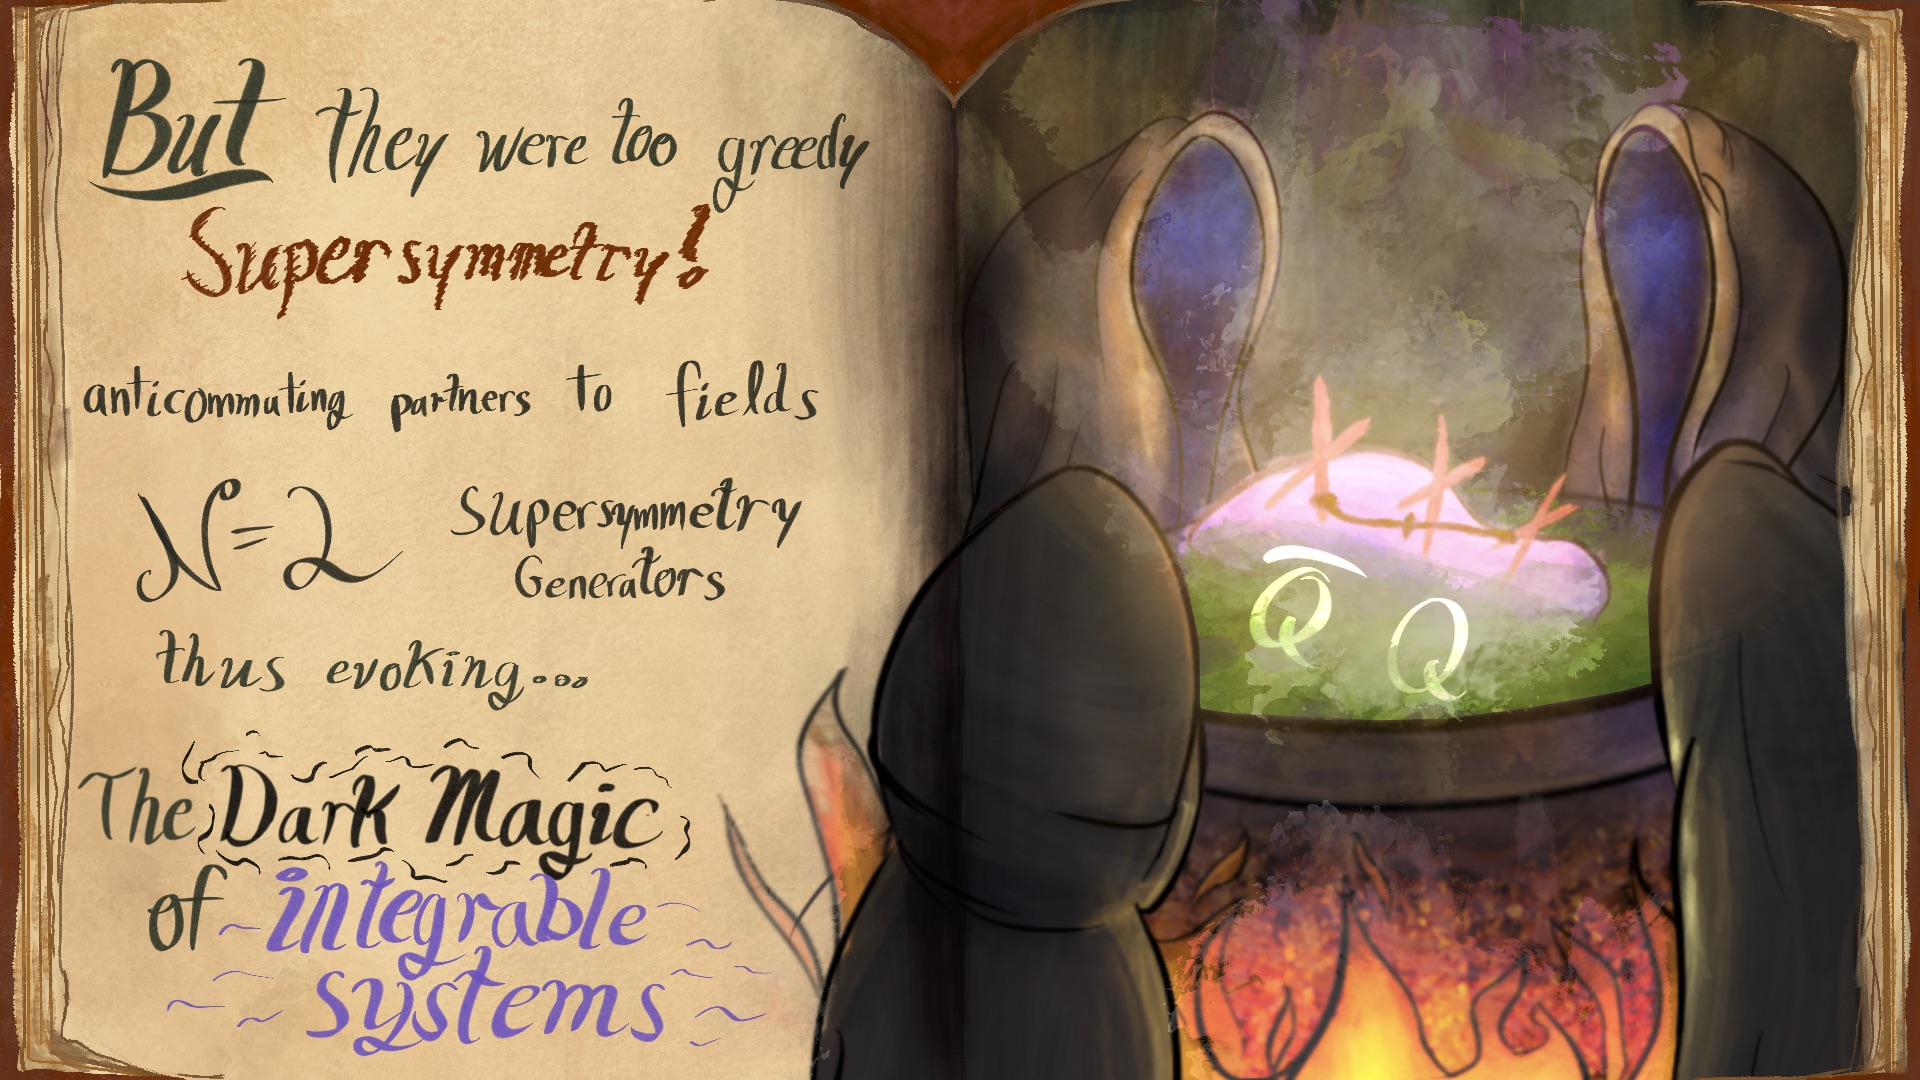 But they were too greedy
Supersymmetry!
anticommuting partners to fields
N=2 Supersymmetry
Generators
thus evoking...
The Dark Magic
of integrable
systems
Q̅ Q